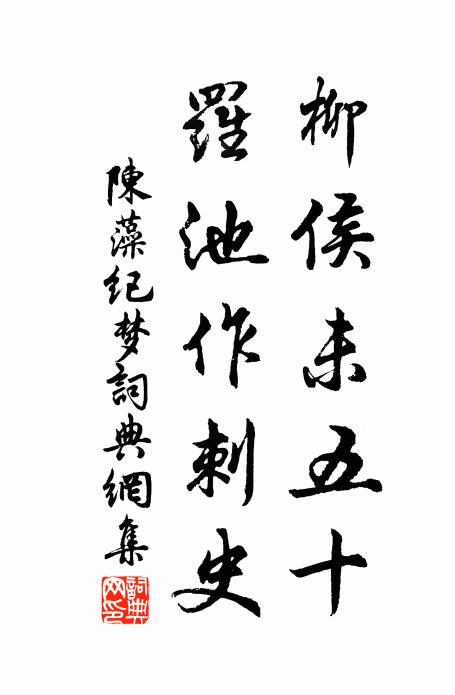 柳侯未五十
羅池作刺史
陳藻纪梦詞典網集
詞典网印